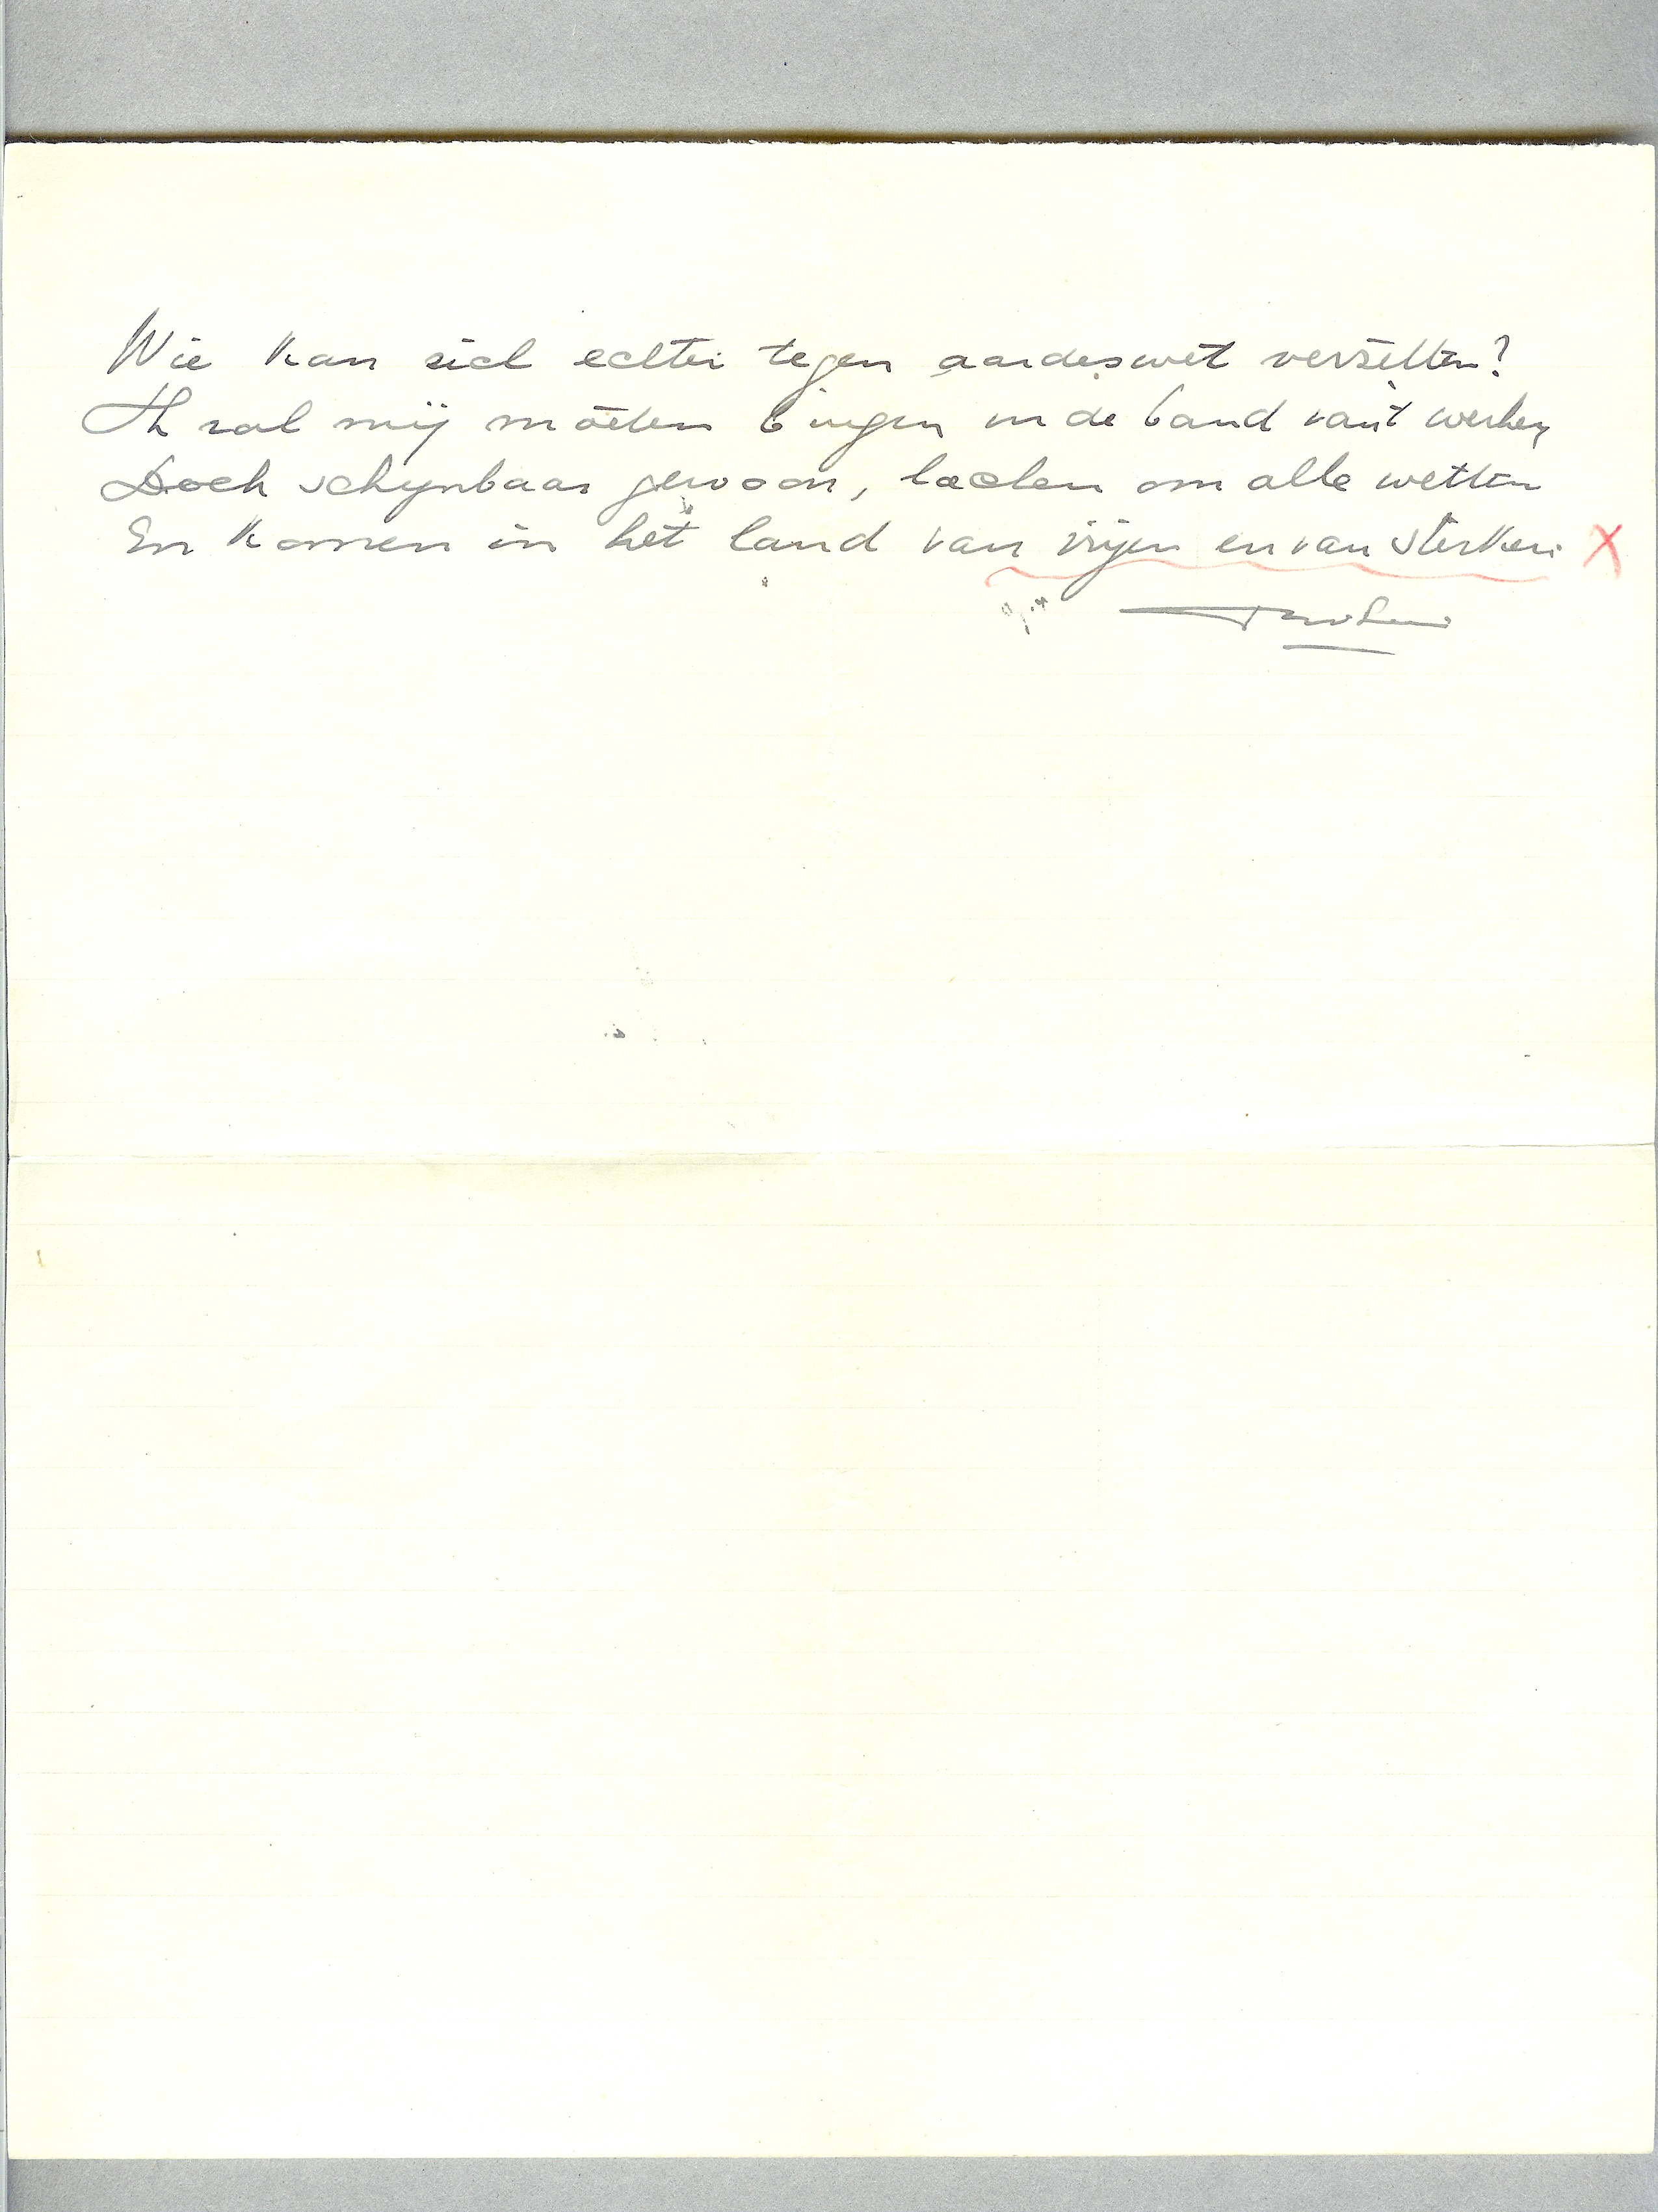 Wie kan zich echter tegen aardes wet verzetten?
Ik zal mij moeten buigen in de band van't werken
Doch schijnbaar gewoon, lachen om alle wetten
En komen in het land van vrijen en van sterken.
X